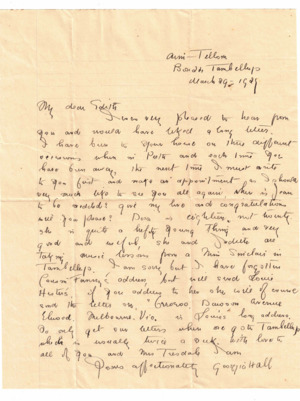 Tambellup
March 29. 1929
My dear Edith
I was very pleased to hear from
you and would have liked a long letter.
I have been to your house on three different
occasions when in Perth and each time you
have been away. The next time I must write
to you first and make an appointment as I should
very much like to see you all again. When is Jean
to be wedded? give my love and congratulations
will you please? Dora is eighteen next
she is quite a hefty young thing and very
good and useful, she and are
taking music lessons from a Miss Sinclair in
Tambellup. I am sorry but I have forgotten
Cousin Fanny's address but will send
if you address to her she will of course
send the letter on. Dawson Avenue
Elwood, Melbourne. Vic. is Louis' long address.
We only get our letters when we go to Tambellup
which is usually twice a week, with love to
all of you and Mrs Tisdale I am
Yours affectionately Georgie Hall